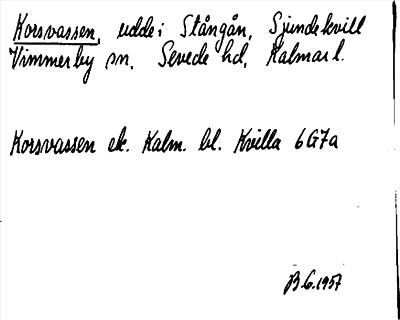 Korsvassen, udde i Stångån, Sjundekvill
Vimmerby sn. Sevede hd, Kalmar l.
Korsvassen ek. Kalm. bl. Kvilla 6G7a
B G. 1957